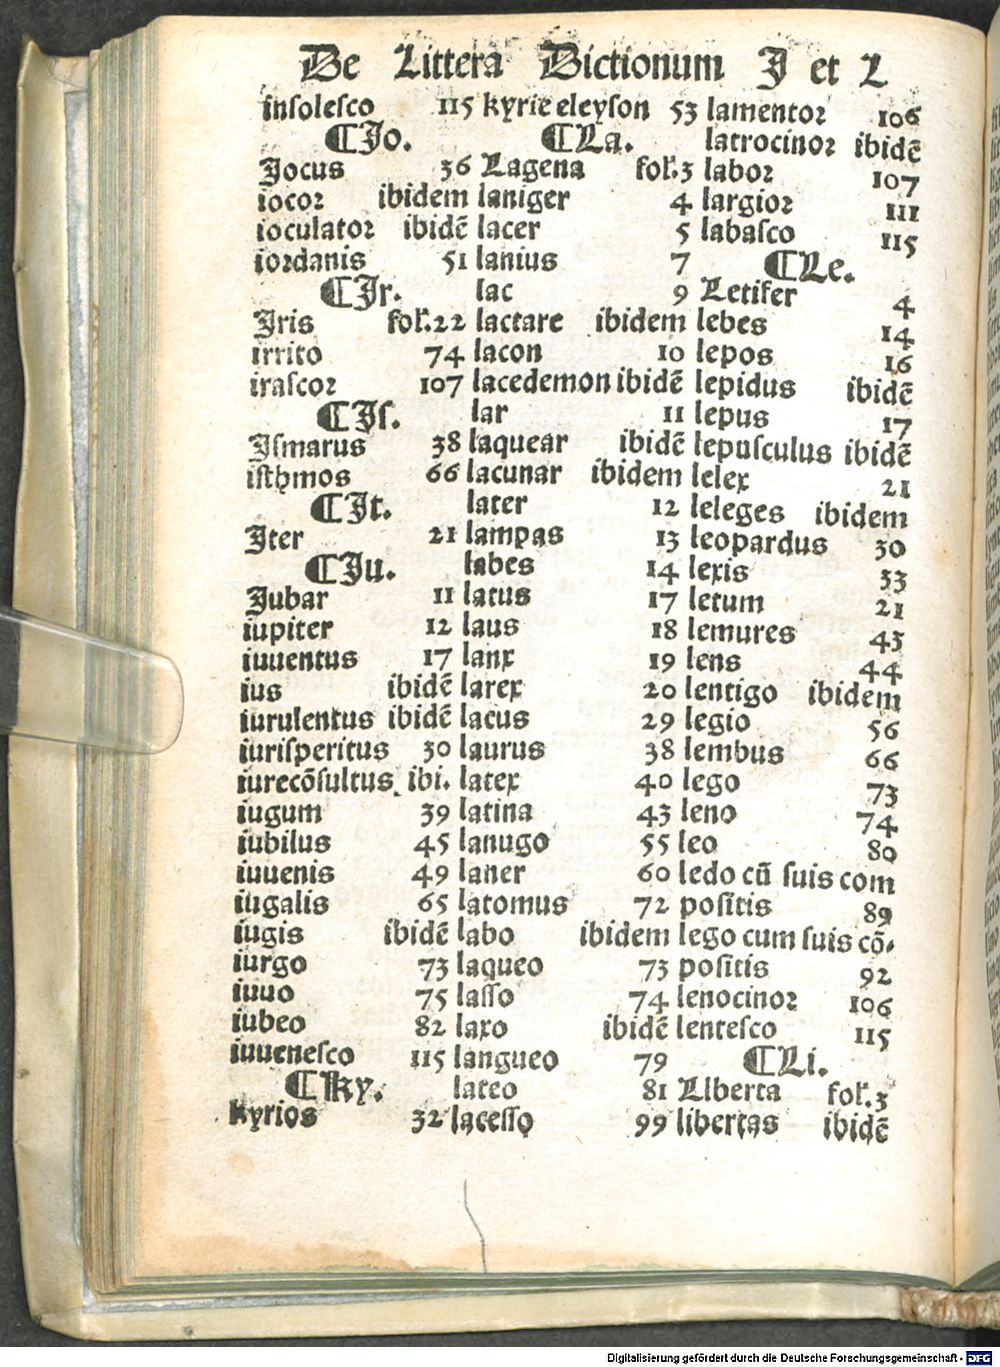 De Littera Dictionum J et L
insolesco 115
¶Jo.
Jocus 36
iocor ibidem
ioculator ibidē
iordanis 51
¶Jr.
Jris fol.22
irrito 74
irascor 107
¶Js.
Jsmarus 38
isthmos 66
¶Jt.
Jter 21
¶Ju.
Jubar 11
iupiter 12
iuuentus 17
ius ibidē
iurulentus ibidē
iurisperitus 30
iurecōsultus ibi.
iugum 39
iubilus 45
iuuenis 49
iugalis 65
iugis ibidē
iurgo 73
iuuo 75
iubeo 82
iuuenesco 115
¶ky.
kyrios 32
kyrie eleyson 53
¶La.
Lagena fol.3
laniger 4
lacer 5
lanius 7
lac 9
lactare ibidem
lacon 10
lacedemon ibidē
lar 11
laquear ibidē
lacunar ibidem
later 12
lampas 13
labes 14
latus 17
laus 18
lanx 19
larex 20
lacus 29
laurus 38
latex 40
latina 43
lanugo 55
laner 60
latomus 72
labo ibidem
laqueo 73
lasso 74
laxo ibidē
langueo 79
lateo 81
lacesso 99
lamentor 106
latrocinor ibidē
labor 107
largior 111
labasco 115
¶Le.
Letifer 4
lebes 14
lepos 16
lepidus ibidē
lepus 17
lepusculus ibidē
lelex 21
leleges ibidem
leopardus 30
lexis 33
letum 21
lemures 43
lens 44
lentigo ibidem
legio 56
lembus 66
lego 73
leno 74
leo 80
ledo cū suis com
positis 89
lego cum suis cō-
positis 92
lenocinor 106
lentesco 115
¶Li.
Liberta fol.3
libertas ibidē
Digitalisierung gefördert durch die Deutsche Forschungsgemeinschaft - DFG